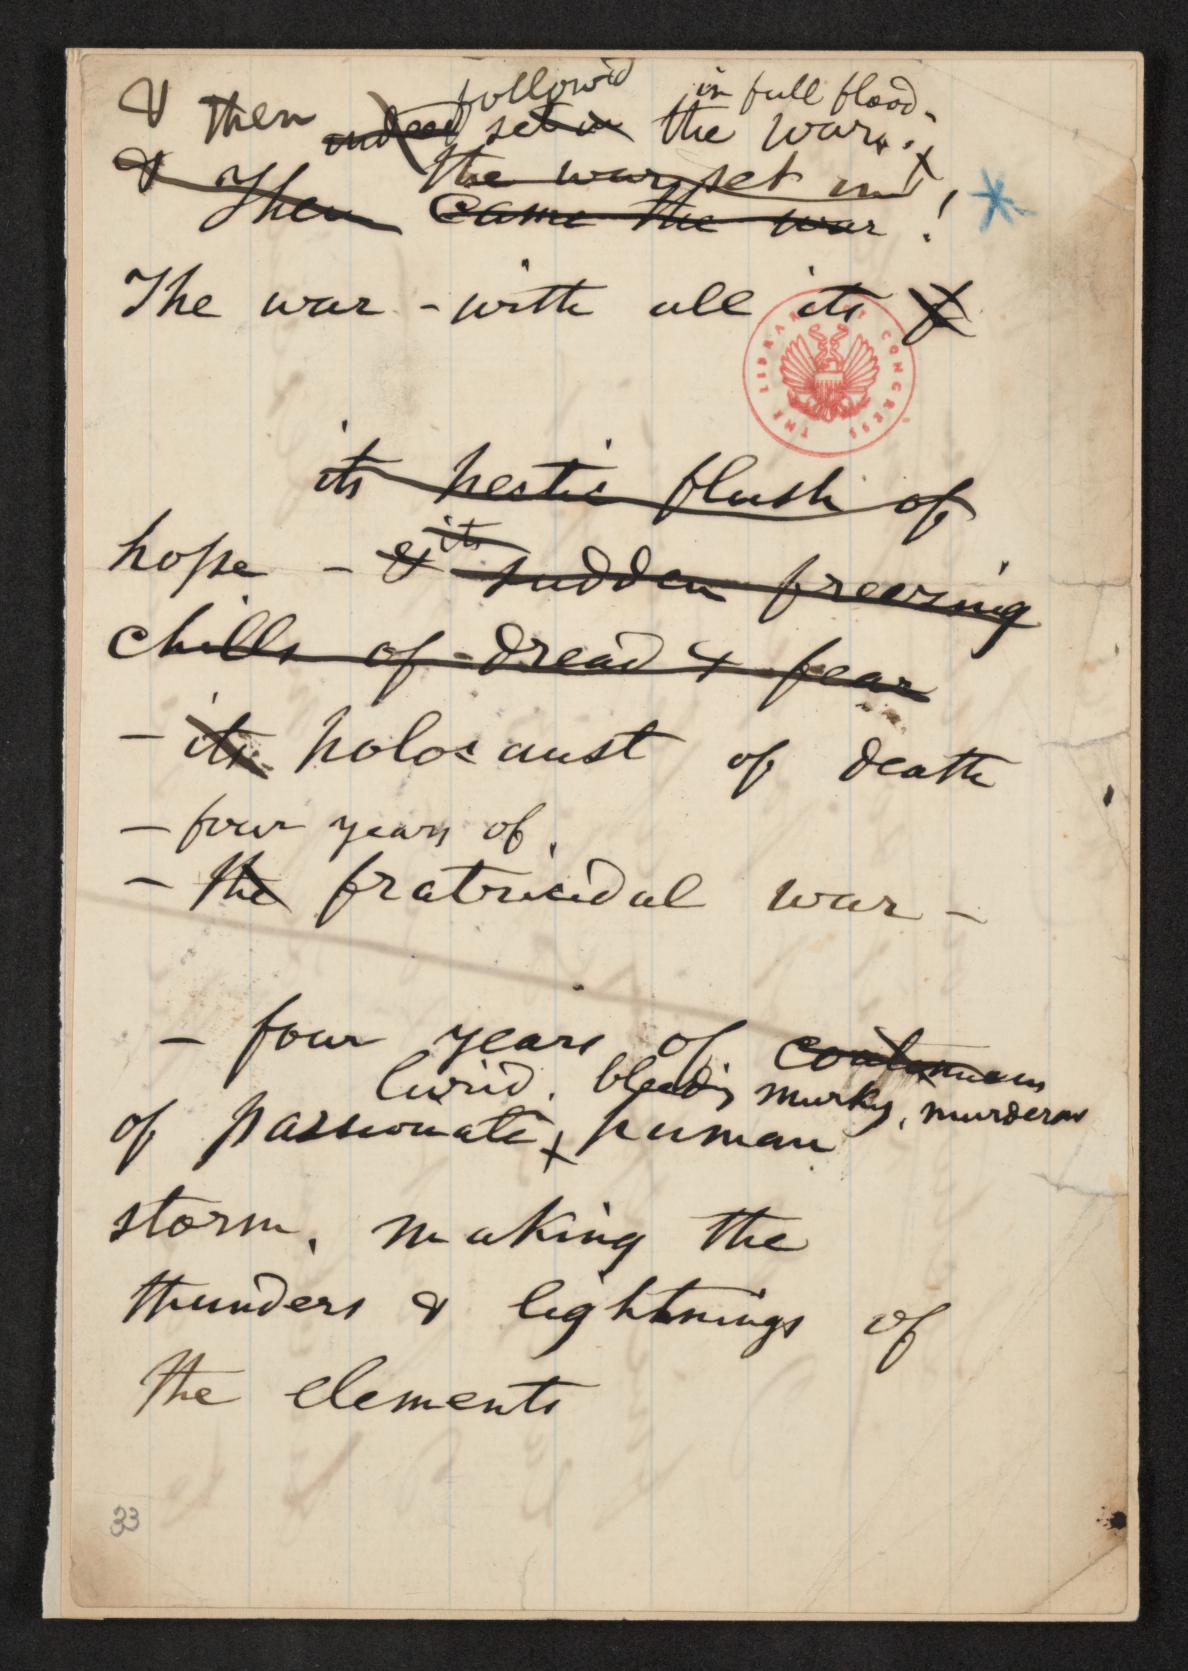 followed in full flood.
& Then indeed set in the war.
the war set in
& Then came the war!
The war - with all its f
THE LIBRARY OF CONGRESS
its hectic flush of
its
hope - & sudden freezing
chills of dread & fear
- its holocaust of death
- four years of
- the fratricidal war -
- four years of continuous
lurid, bleeding, murky, murderous
of passionate, human
storm, making the
thunders & lightnings of
the elements
33